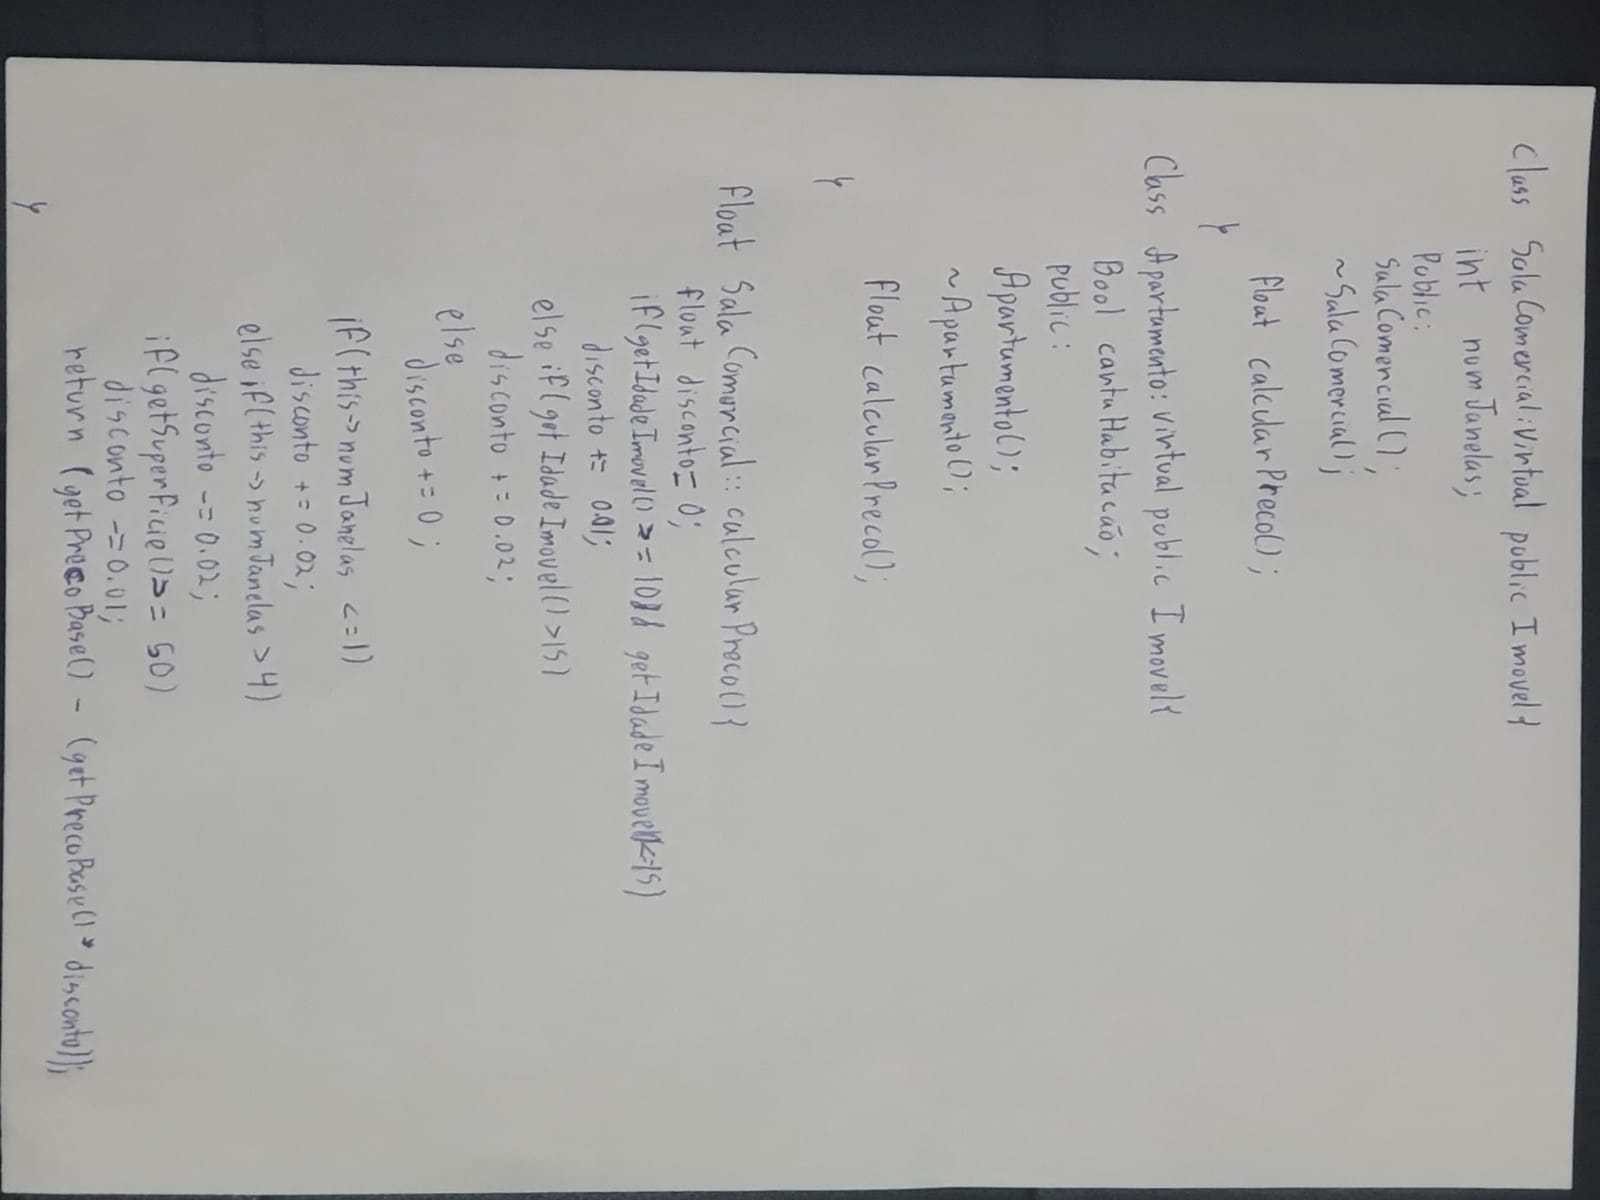 Class SalaComercial: virtual public Imovel{
int numJanelas;
Public:
SalaComercial();
~SalaComercial();
float calcularPreco();
}
Class Apartamento: virtual public Imovel{
Bool cartaHabitacão;
public:
Apartamento();
~Apartamento();
float calcularPreco();
}
float SalaComercial::calcularPreco(){
float disconto = 0;
if(getIdadeImovel() >= 10 && getIdadeImovel()<=15)
disconto += 0.01;
else if(getIdadeImovel()>15)
disconto += 0.02;
else
disconto += 0;
if(this->numJanelas <=1)
disconto += 0.02;
else if(this->numJanelas >4)
disconto -= 0.02;
if(getSuperficie()>= 50)
disconto -= 0.01;
return (getPrecoBase() - (getPrecoBase() * disconto));
}